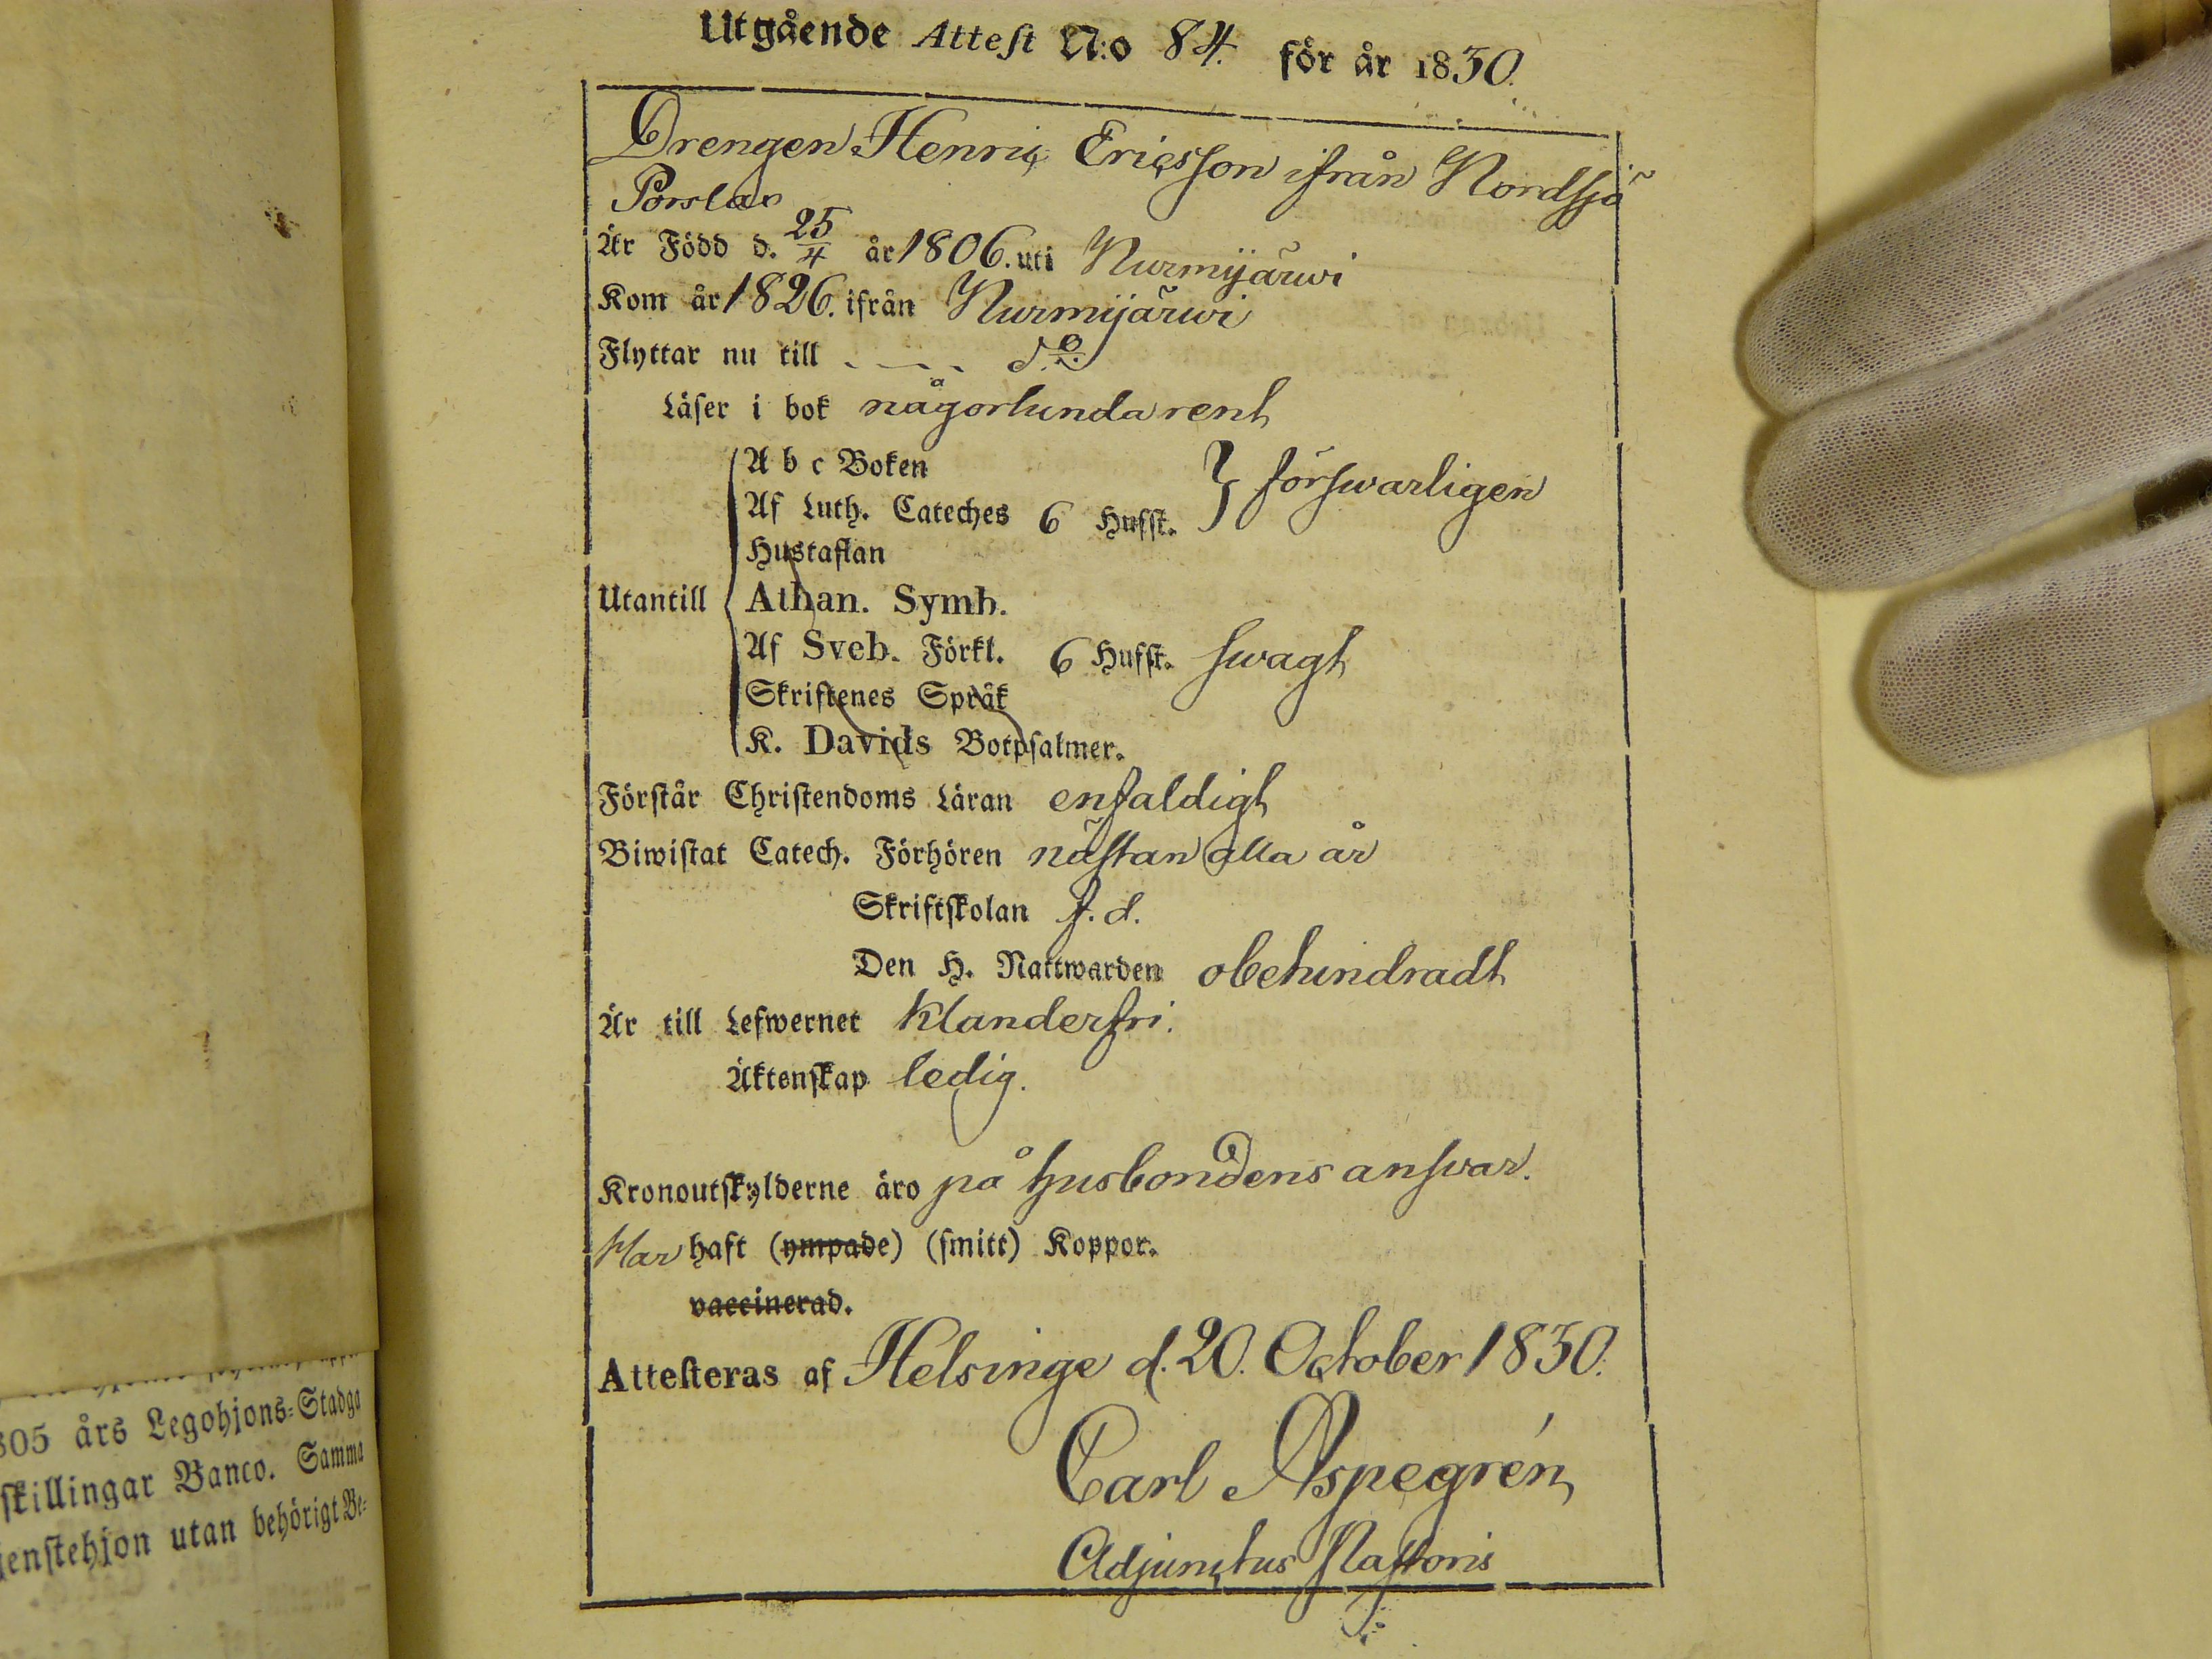 Utgående Attest N:o 84. för år 1830.
Drengen Henric Ericsson ifrån Nordsjö
Porslax
Är Född d. 25/4 år 1806. uti Nurmijärwi
Kom år 1826. ifrån Nurmijärwi
Flyttar nu till - - - - d:o
Läser i bok någorlunda rent
A b c Boken
Af Luth. Cateches 6 Hufst. } förswarligen
Hustaflan
Utantill { Athan. Symb.
Af Sveb. Förkl. 6 Hufst. swagt
Skriftenes Språk
K. Davids Botpsalmer.
Förstår Christendoms Läran enfaldigt
Biwistat Catech. Förhören nästan alla år
Skriftskolan f. d.
Den H. Nattwarden obehindradt
Är till Lefwernet klanderfri.
Äktenskap ledig.
Kronoutskylderne äro på husbondens answar.
Har haft (ympade) (smitt) Koppor.
vaccinerad.
Attesteras af Helsinge d. 20. October 1830.
Carl Aspegrén
Adjunctus Pastoris
805 års Legohjons-Stadga
skillingar Banco. Samma
jenstehjon utan behörigt Be-